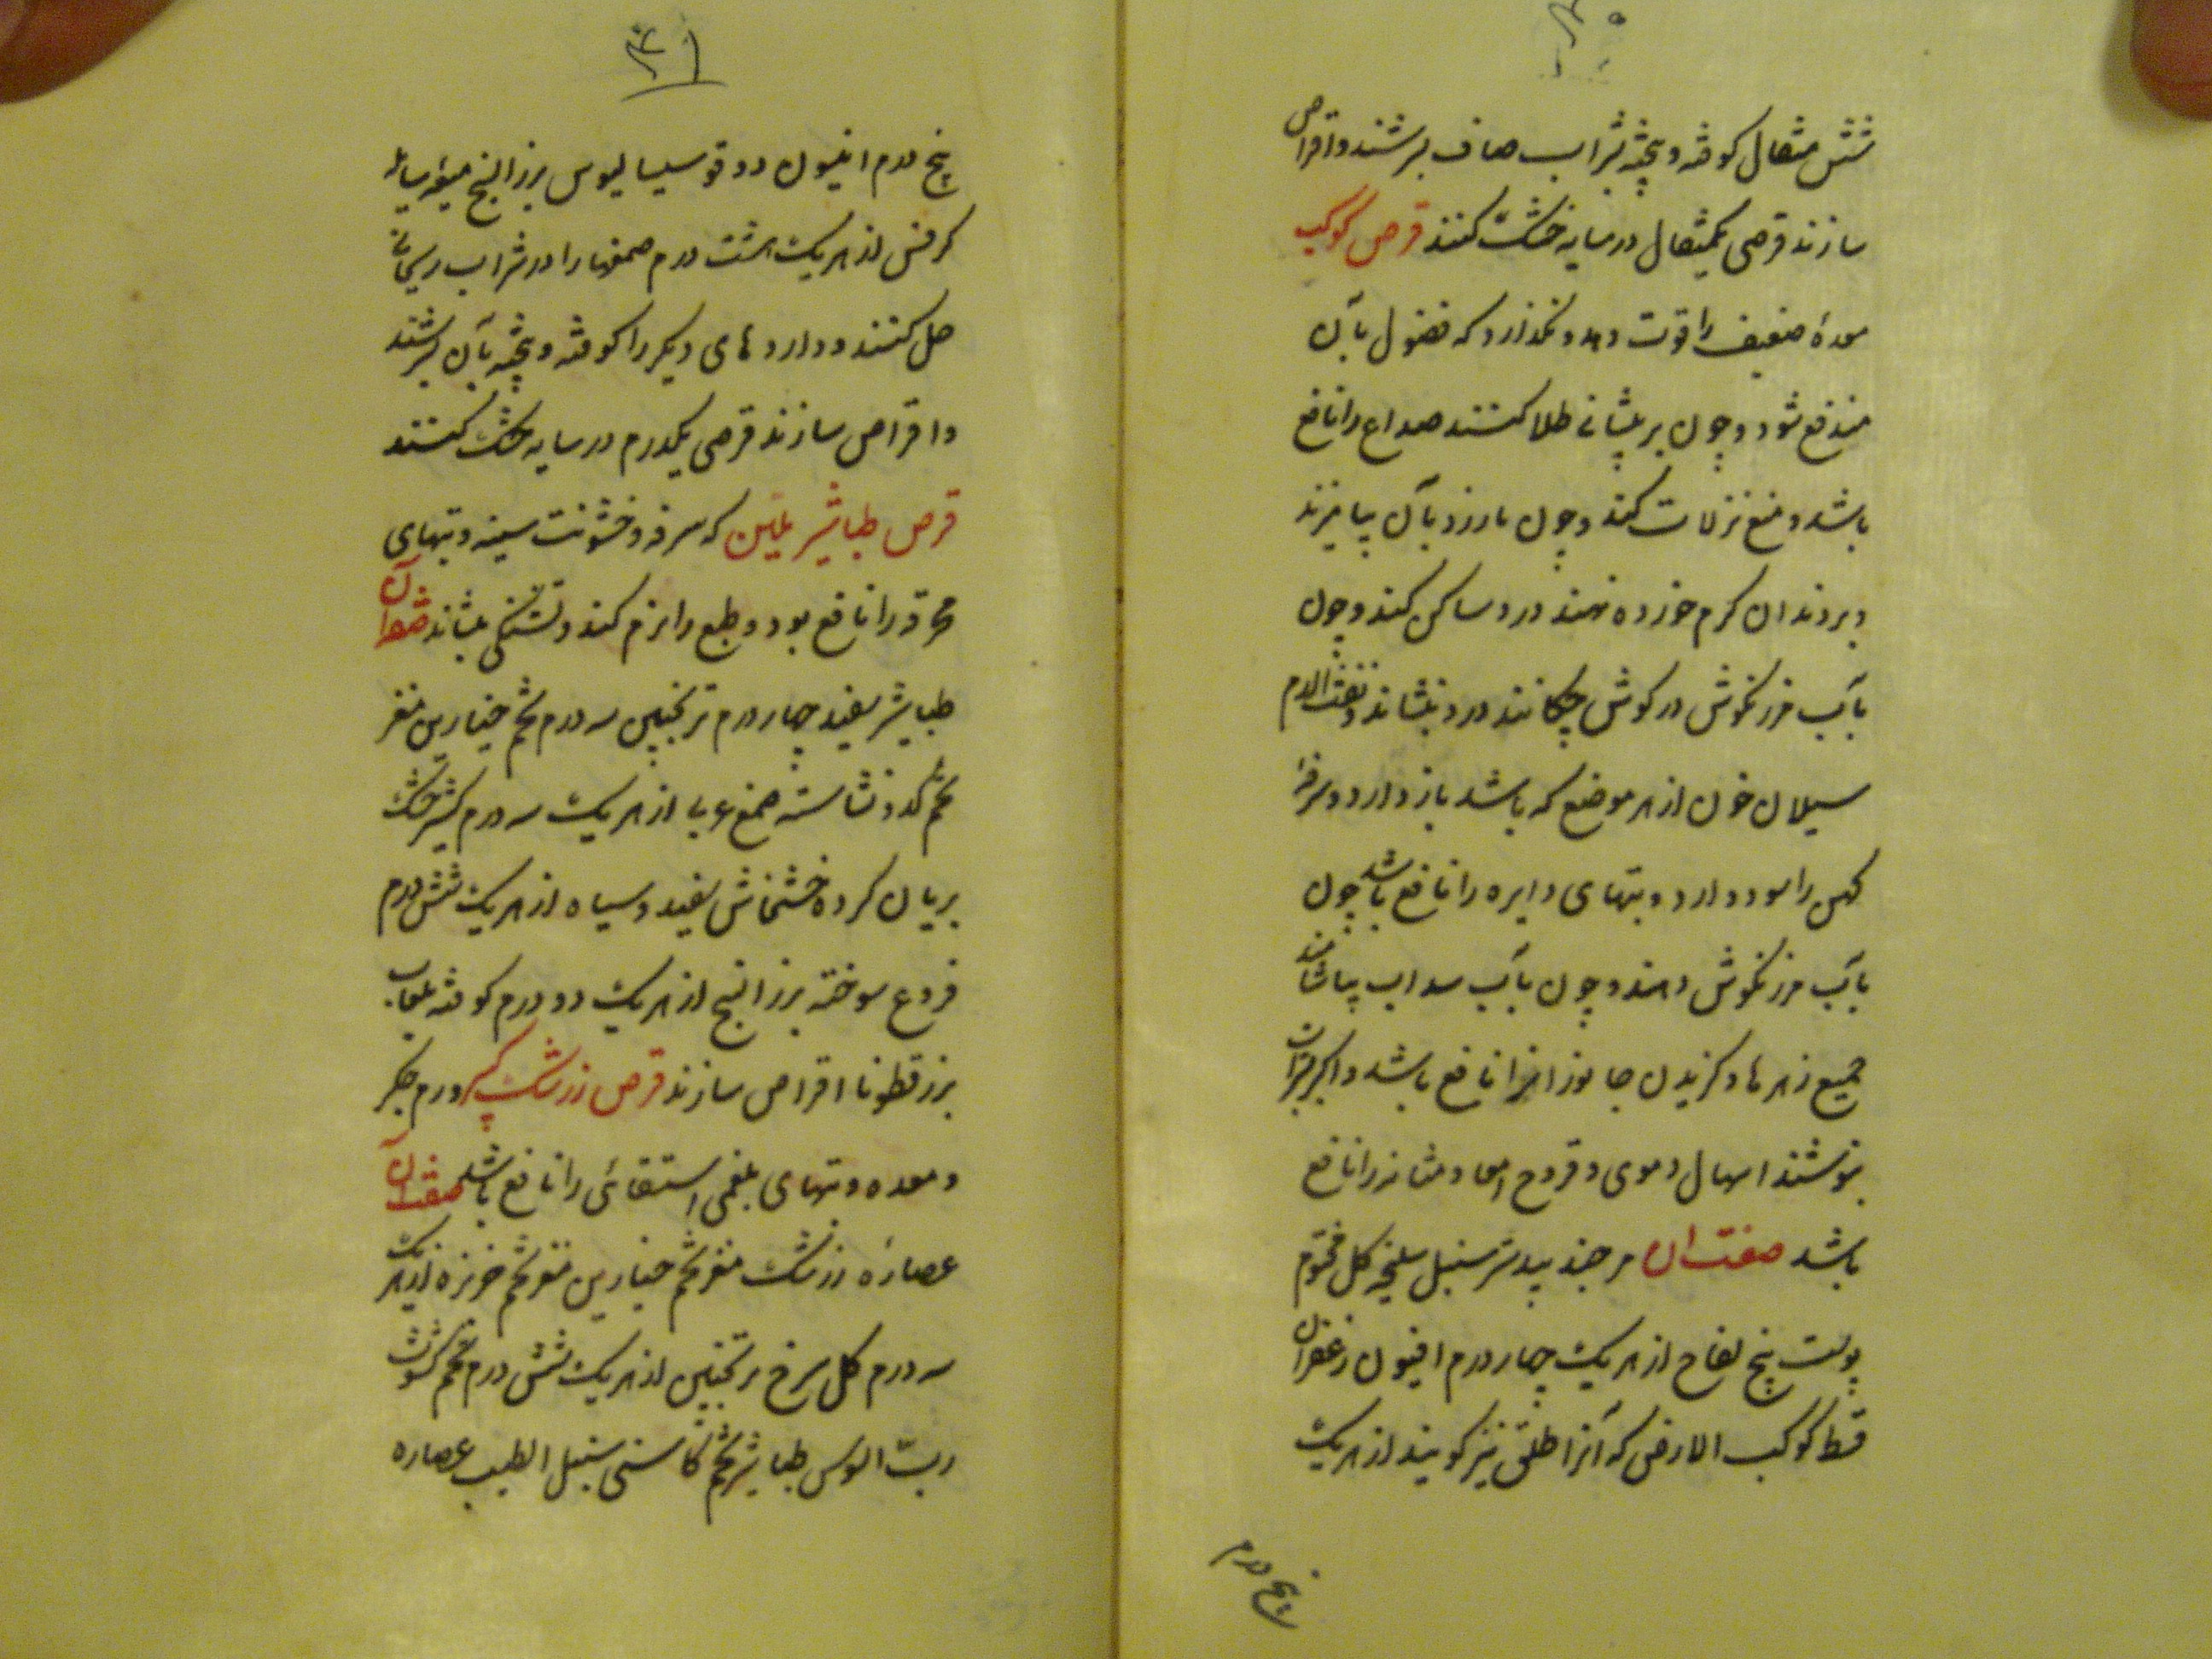 شش مثقال کوفته و بیخته بشراب صاف بسرشند و اقراص
سازند قرصی یکمثقال در سایه خشک کنند قرص کوکب
معدهٔ ضعیف را قوت دهد و نگذارد که فضول بآن
مندفع شود و چون بر پیشانی طلا کنند صداع را نافع
باشد و منع نزلات کند و چون با رزد بآن بیامیزند
و بر دندان کرم خورده نهند درد ساکن کند و چون
بآب مرزنگوش در گوش چکانند درد بنشاند و نفث الدم
سیلان خون از هر موضع که باشد باز دارد و سرفهٔ
کهن را سود دارد و تبهای دایره را نافع باشد چون
بآب مرزنگوش دهند و چون بآب سداب بیاشامند
جمیع زهرها و گزیدن جانوران را نافع باشد و اگر
بنوشند اسهال دموی و قروح امعا و مثانه را نافع
باشد صفت آن مر جند بیدستر سنبل سلیخه گل مختوم
پوست بیخ لفاح از هر یک چهار درم افیون زعفران
قسط کوکب الارض که آنرا طلق نیز گویند از هر یک
پنج درم
۴۱
پنج درم انیسون دوقو سیسالیوس بزر البنج میعه سایله
کرفس از هر یک هشت درم صمغها را در شراب ریحانی
حل کنند و داروهای دیگر را کوفته و بیخته بآن بسرشند
و اقراص سازند قرصی یکدرم در سایه خشک کنند
قرص طباشیر ملین که سرفه و خشونت سینه و تبهای
محرقه را نافع بود و طبع را نرم کند و تشنگی بنشاند صفت آن
طباشیر سفید چهار درم ترنجبین سه درم تخم خیارین مغز
تخم کدو نشاسته صمغ عربی از هر یک سه درم خشک
بریان کرده خشخاش سفید و سیاه از هر یک شش درم
سوخته بزر البنج از هر یک دو درم کوفته بلعاب
بزرقطونا اقراص سازند قرص زرشک کبیر ورم جگر
و معده و تبهای بلغمی استسقائی را نافع باشد صفت آن
عصارهٔ زرشک مغز تخم خیارین مغز تخم خربزه از هر یک
سه درم گل سرخ ترنجبین از هر یک شش درم تخم کشوث
ربّ السوس طباشیر تخم کاسنی سنبل الطیب عصاره